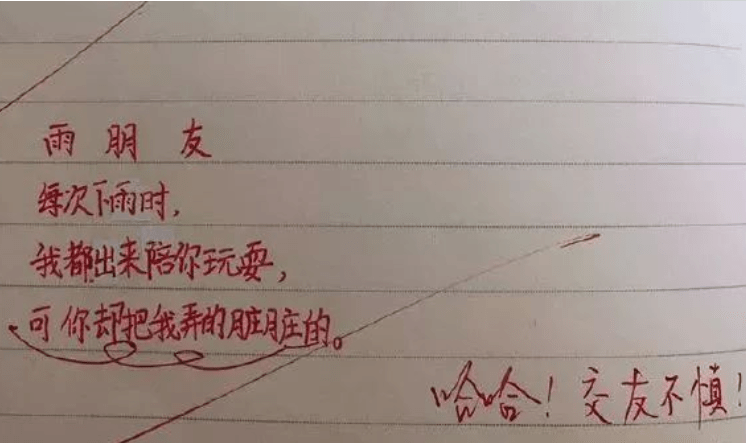 雨朋友
每次下雨时,
我都出来陪你玩耍,
可你却把我弄的脏脏的。
哈哈！交友不慎！